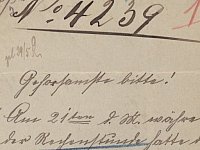 No 4239
Gehorsamste Bitte!
Am 21ten d. M. währe
der Rechenstunde hatte